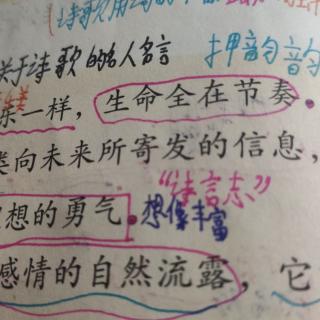 诗歌用词的
关于诗歌的名人名言 押韵 韵
乐一样，生命全在节奏。
类向未来所寄发的信息，
“诗言志”
想的勇气。想像丰富
感情的自然流露，它